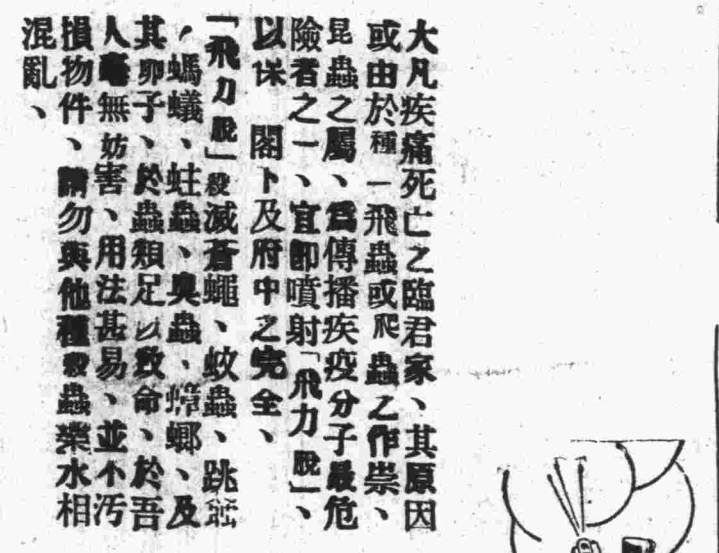 大凡疾痛死亡之臨君家、其原因
或由於種一飛蟲或爬蟲之作祟、
昆蟲之屬、爲傳播疾疫分子最危
險者之一、宜卽噴射「飛力脫」、
以保 閣下及府中之完全、
「飛力脫」殺滅蒼蠅、蚊蟲、跳蚤
、螞蟻、蛀蟲、臭蟲、蟑螂、及
其卵子、於蟲類足以致命、於吾
人毫無妨害、用法甚易、並不汚
損物件、請勿與他種殺蟲藥水相
混亂、